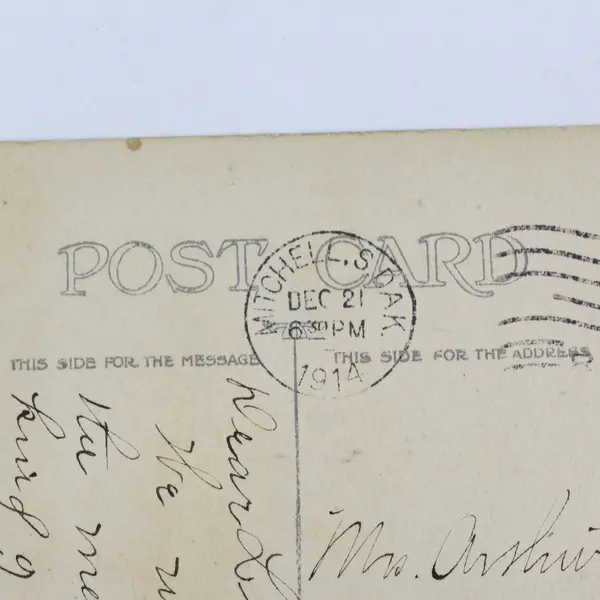 POST CARD
MITCHELL, S. DAK.
DEC 21
6 30 PM
1914
THIS SIDE FOR THE MESSAGE
THIS SIDE FOR THE ADDRESS
Dear
We
the
kind
Mrs.